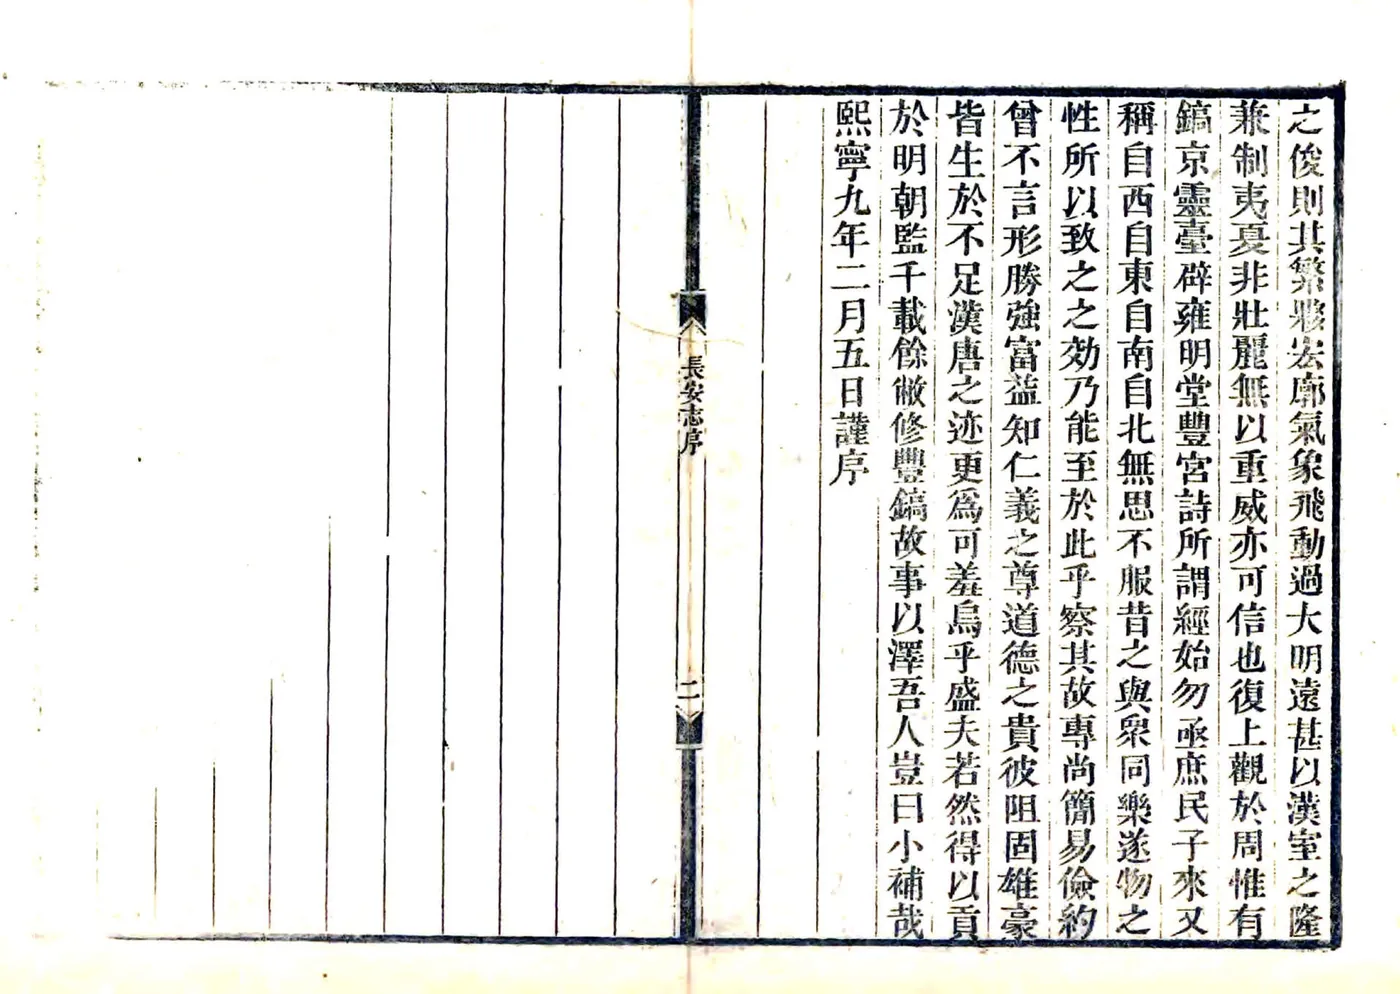 之俊則其繁夥宏廓氣象飛動過大明遠甚以漢室之隆
兼制夷夏非壯麗無以重威亦可信也復上觀於周惟有
鎬京靈臺辟雍明堂豐宮詩所謂經始勿亟庶民子來又
稱自西自東自南自北無思不服昔之與衆同樂遂物之
性所以致之之効乃能至於此乎察其故專尚簡易儉約
曾不言形勝強富益知仁義之尊道德之貴彼阻固雄豪
皆生於不足漢唐之迹更爲可羞烏乎盛夫若然得以貢
於明朝監千載餘敝修豐鎬故事以澤吾人豈曰小補哉
熙寧九年二月五日謹序
長安志序
二